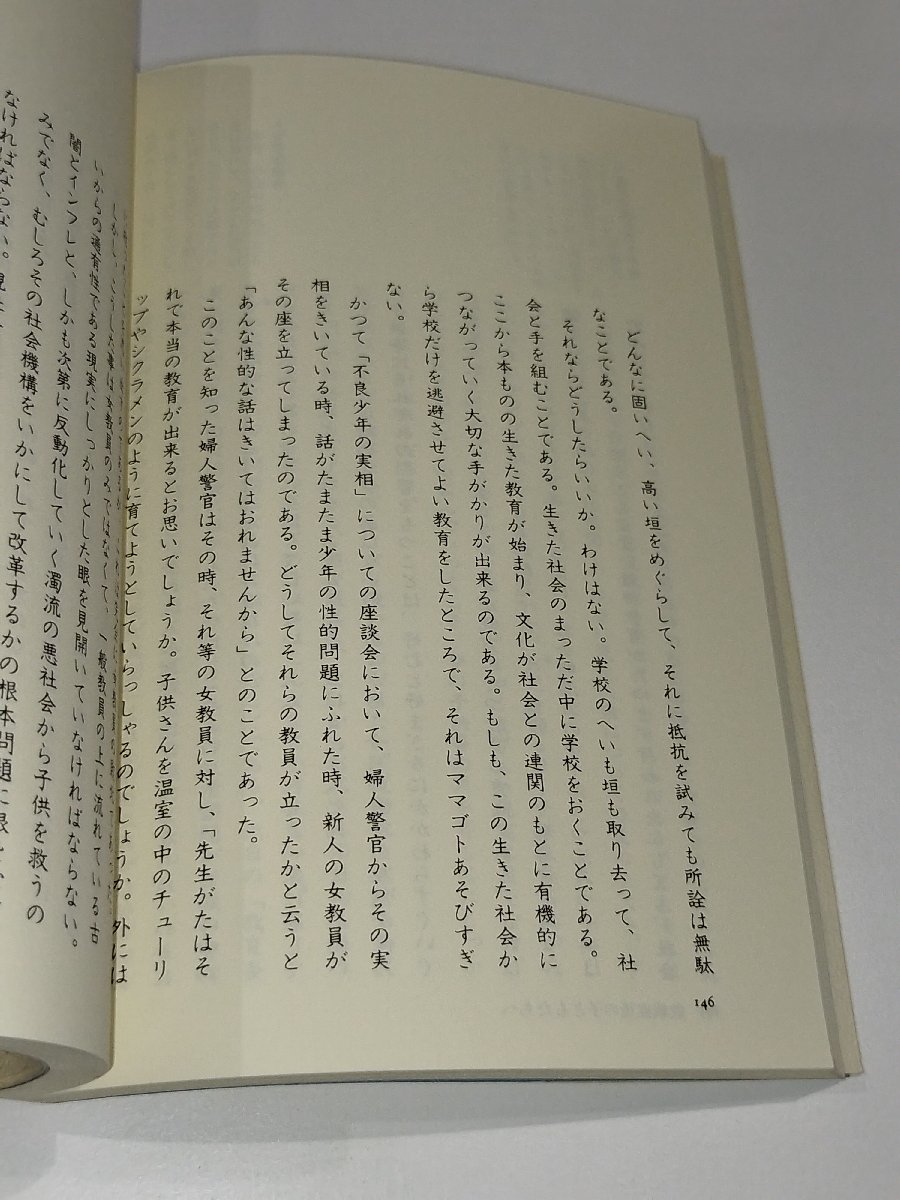 どんなに固いへい、高い垣をめぐらして、それに抵抗を試みても所詮は無駄
なことである。
それならどうしたらいいか。わけはない。学校のへいも垣も取り去って、社
会と手を組むことである。生きた社会のまっただ中に学校をおくことである。
ここから本ものの生きた教育が始まり、文化が社会との連関のもとに有機的に
つながっていく大切な手がかりが出来るのである。もしも、この生きた社会か
ら学校だけを逃避させてよい教育をしたところで、それはママゴトあそびすぎ
ない。
かつて「不良少年の実相」についての座談会において、婦人警官からその実
相をきいている時、話がたまたま少年の性的問題にふれた時、新人の女教員が
その座を立ってしまったのである。どうしてそれらの教員が立ったかと云うと
「あんな性的な話はきいてはおれませんから」とのことであった。
このことを知った婦人警官はその時、それ等の女教員に対し、「先生がたはそ
れで本当の教育が出来るとお思いでしょうか。子供さんを温室の中のチューリ
ップやシクラメンのように育てようとしていらっしゃるのでしょうか。外には
しかし、こうした事は女教員のみではなくて、一般教員の上に流れている古
いからの通有性である現実にしっかりとした眼を見開いていなければならない。
闇とインフレと、しかも次第に反動化していく濁流の悪社会から子供を救うの
みでなく、むしろその社会機構をいかにして改革するかの根本問題に
なければならない。
146